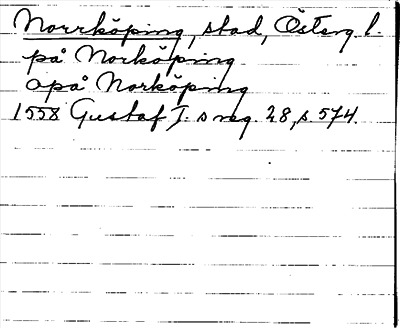 Norrköping, stad, Österg. l.
på Norköping
opå Norköping
1558 Gustaf I:s reg. 28, s. 574.